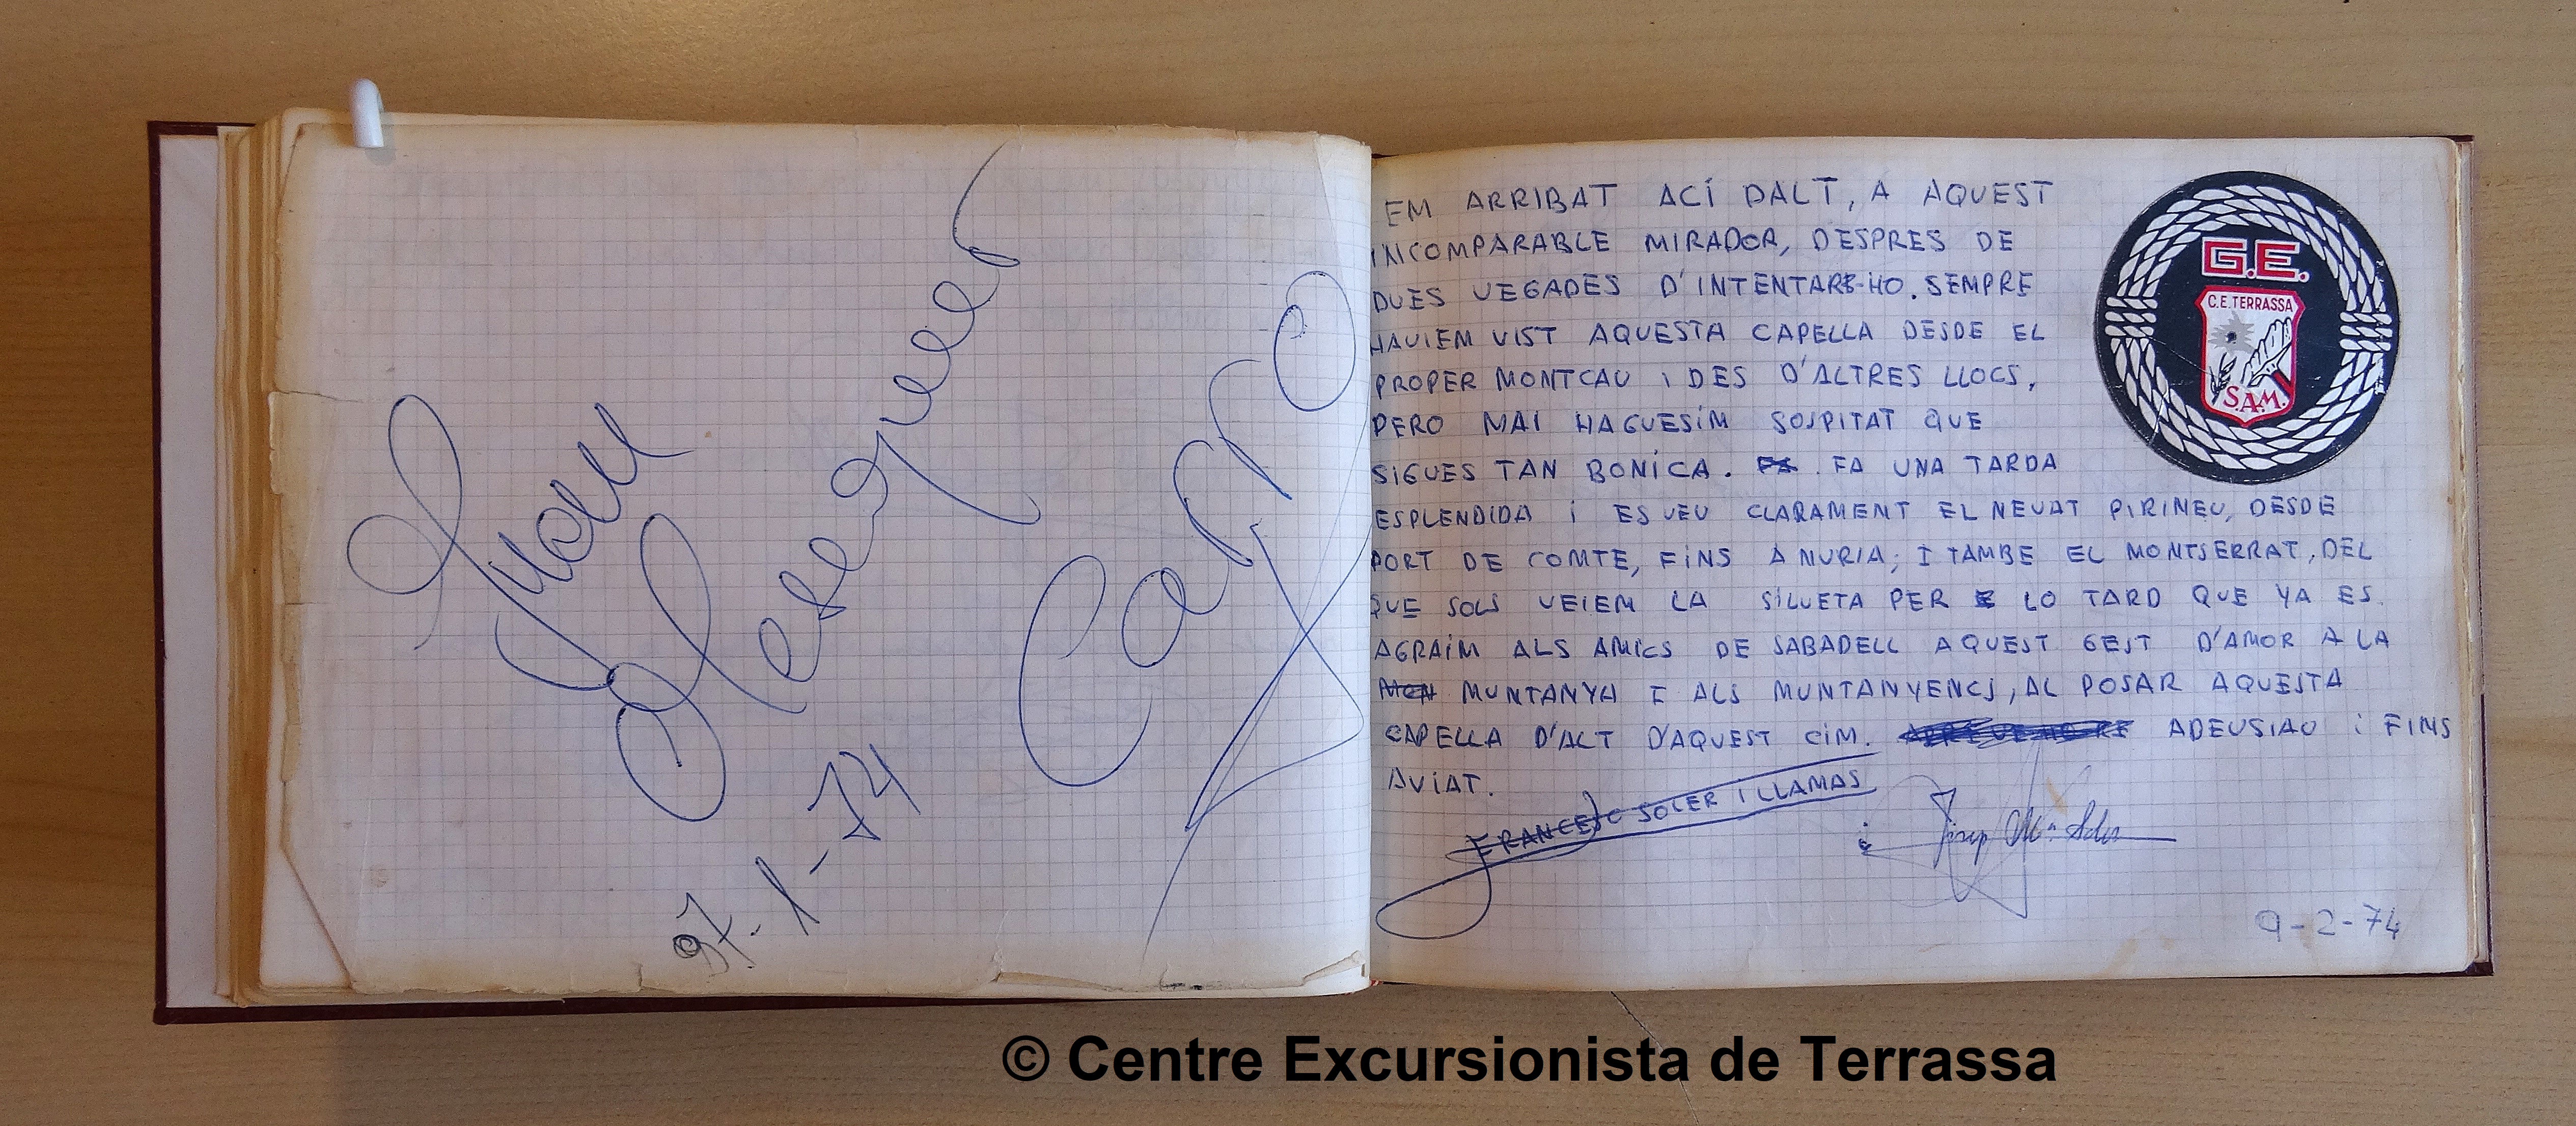 Joan
Caro
-1-74
EM ARRIBAT ACÍ DALT, A AQUEST
INCOMPARABLE MIRADOR, DESPRES DE
DUES VEGADES D'INTENTARE-HO. SEMPRE
HAVIEM VIST AQUESTA CAPELLA DESDE EL
PROPER MONTCAU i DES D'ALTRES LLOCS,
PERO MAI HAGUESÍM SOSPITAT QUE
SIGUES TAN BONÍCA. FA FA UNA TARDA
ESPLENDIDA i ES VEU CLARAMENT EL NEVAT PIRINEU, DESDE
PORT DE COMTE, FINS A NURIA; I TAMBE EL MONTSERRAT, DEL
QUE SOLS VEIEM LA SILUETA PER E LO TARD QUE YA ES.
AGRAIM ALS AMICS DE SABADELL AQUEST GEST D'AMOR A LA
MON MUNTANYA I ALS MUNTANYENCS, AL POSAR AQUESTA
CAPELLA D'ALT D'AQUEST CIM. ADEUSIAU i FINS
AVIAT.
FRANCESC SOLER I LLAMAS
i Josep Mª Soler
9-2-74
G.E.
C.E. TERRASSA
S.A.M.
© Centre Excursionista de Terrassa